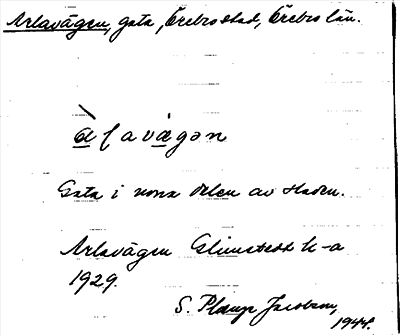 Arlavägen, gata, Örebro stad, Örebro län.
Gata i norra delen av staden.
Arlavägen Glimstedt k-a
1929.
S. Plamp Jacobson,
1944.